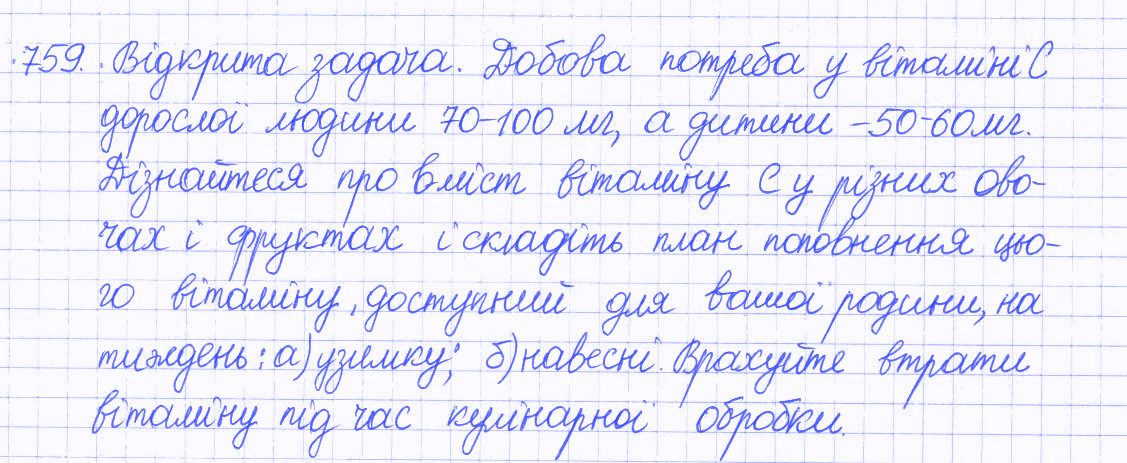 759. Відкрита задача. Добова потреба у вітаміні С
дорослої людини 70-100 мг, а дитини -50-60мг.
Дізнайтеся про вміст вітаміну С у різних ово-
чах і фруктах і складіть план поповнення цьо-
го вітаміну, доступний для вашої родини, на
тиждень: а) узимку; б) навесні. Врахуйте втрати
вітаміну під час кулінарної обробки.